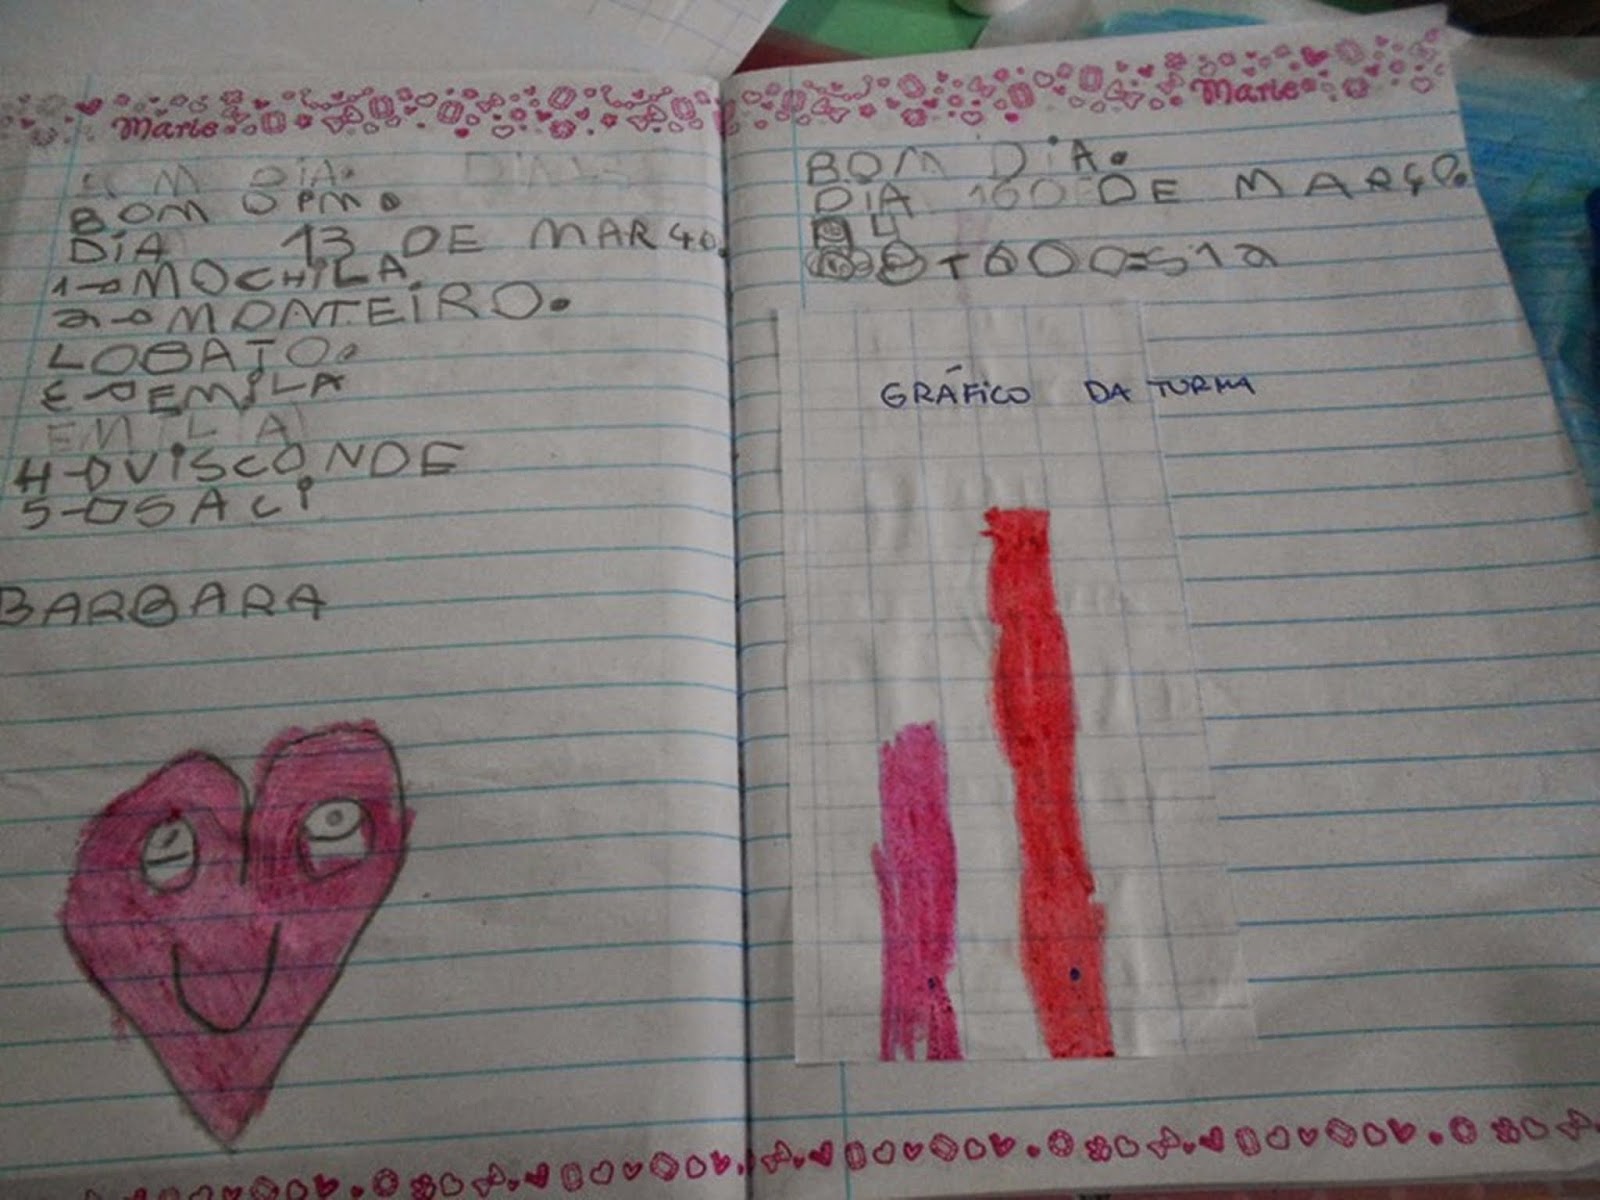 Marie
BOM DIA.
BOM
DIA 13 DE MARÇO.
1-O MOCHILA
2-O MONTEIRO.
LOBATO.
EMILA
EMILA
4-O VISCONDE
5-O SACI
BARBARA
Marie
BOM DIA.
DIA 160 DE MARÇO.
GRÁFICO DA TURMA